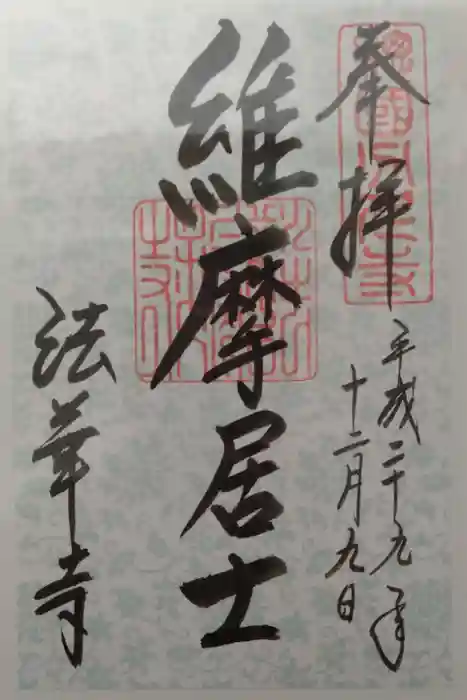 奉拝
平成二十九年
十二月九日
維摩居士
法華寺